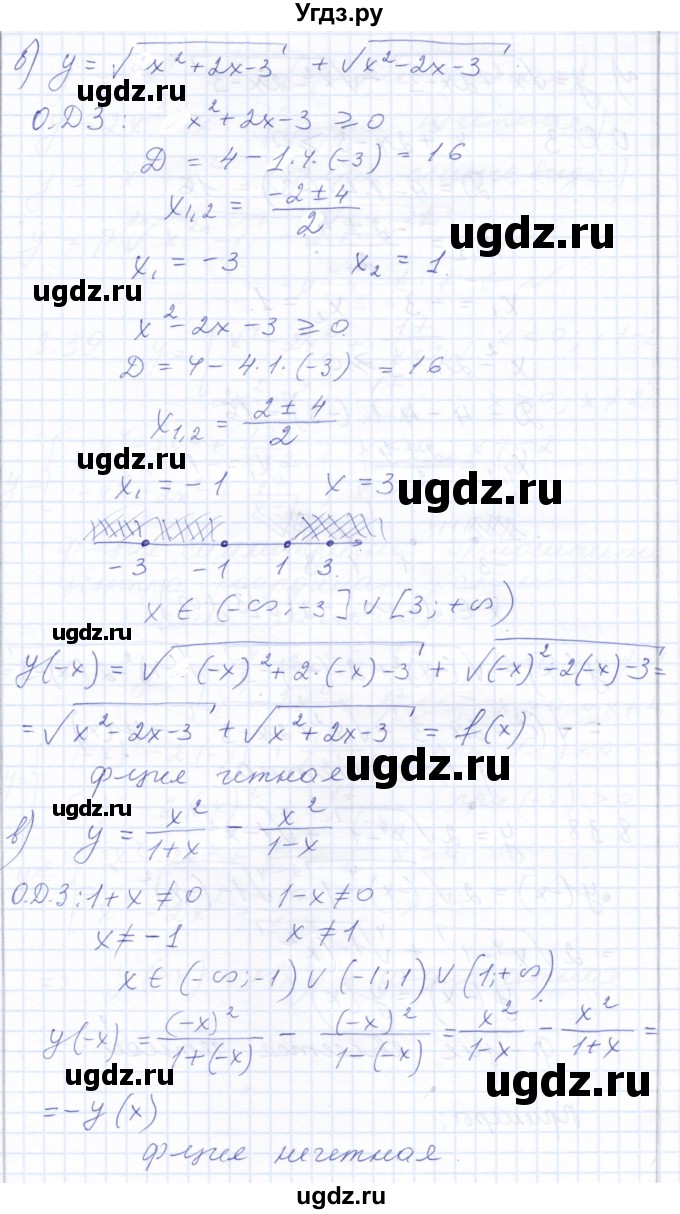 Угдз.ру
в) y = √(x²+2x-3) + √(x²-2x-3)
ugdz.ru
О.Д.З: x²+2x-3 ≥ 0
Д = 4 - 1·4·(-3) = 16
x₁,₂ = (-2±4)/2
ugdz.ru
x₁ = -3 x₂ = 1.
ugdz.ru
x²-2x-3 ≥ 0
Д = 4 - 4·1·(-3) = 16
x₁,₂ = (2±4)/2
ugdz.ru
x₁ = -1 x = 3
ugdz.ru
-3 -1 1 3
x ∈ (-∞; -3] ∪ [3; +∞)
ugdz.ru
y(-x) = √((-x)²+2·(-x)-3) + √((-x)²-2(-x)-3) =
= √(x²-2x-3) + √(x²+2x-3) = f(x)
ф-ция четная
ugdz.ru
ugdz.ru
в) y = x²/(1+x) - x²/(1-x)
О.Д.З: 1+x ≠ 0 1-x ≠ 0
x ≠ -1 x ≠ 1
x ∈ (-∞; -1) ∪ (-1; 1) ∪ (1; +∞)
y(-x) = (-x)²/(1+(-x)) - (-x)²/(1-(-x)) = x²/(1-x) - x²/(1+x) =
ugdz.ru
ugdz.ru
= -y(x)
ф-ция нечетная.
ugdz.ru
ugdz.ru